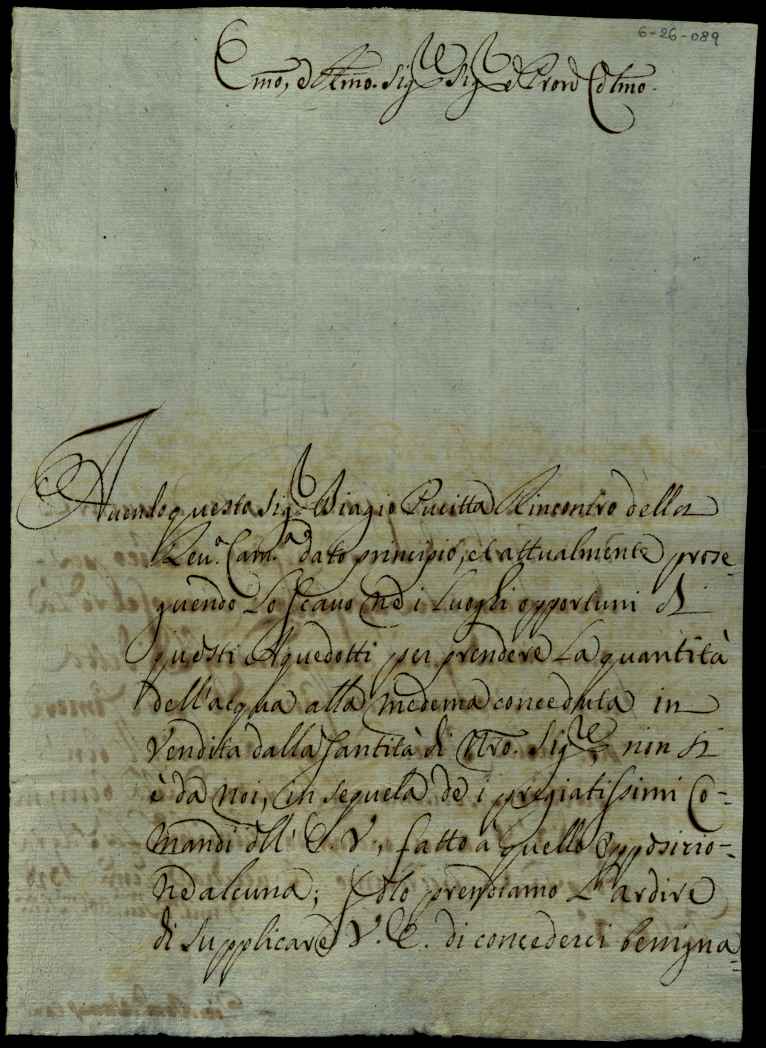 6-26-089
Emo, e Rmo. Sigre Sigre e Pron Colmo.
Auendo questo Sigr Biagio Pucitta Rincontro della
Reua. Cama. dato principio, et attualmente prose-
guendo Lo Scauo ne i Luoghi opportuni di
questi Aquedotti per prendere La quantità
dell'acqua alla medema conceduta in
Vendita dalla Santità di Nro. Sigre, non si
è da Noi, in sequela de i pregiatissimi Co-
mandi dell' E. V, fatto à quello opposizio-
ne alcuna; Solo prendiamo L'ardire
di Supplicare V. E. di concederci benigna=